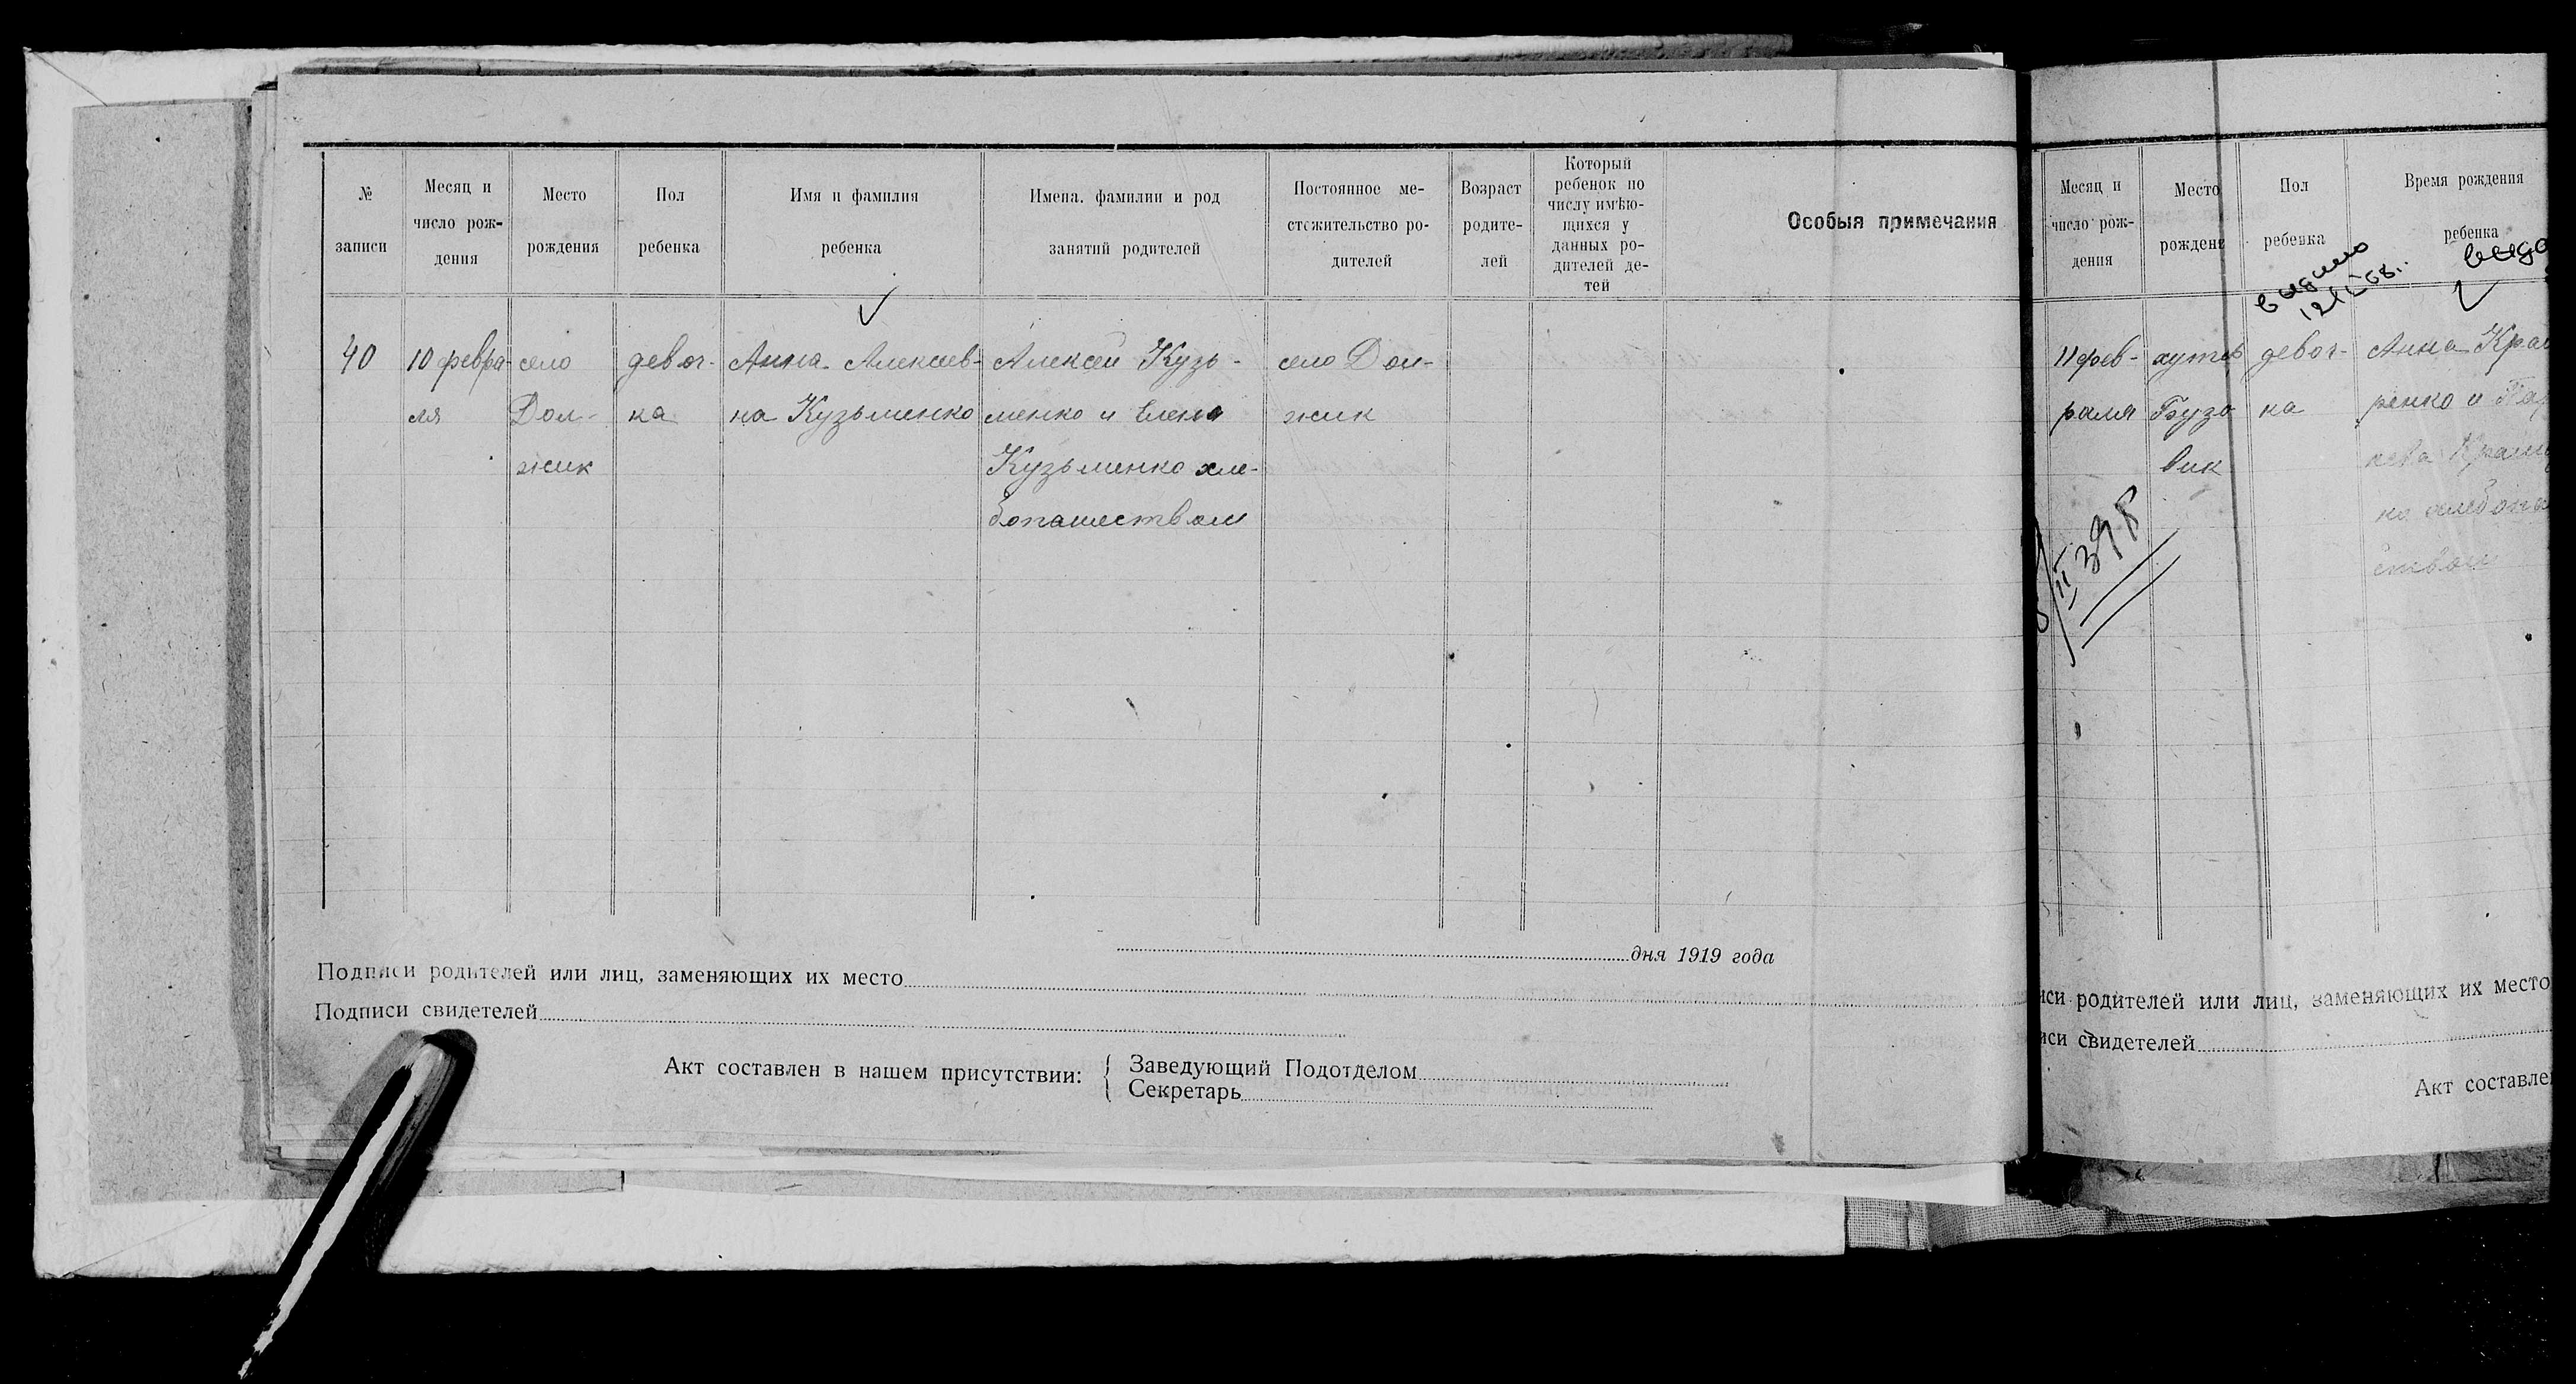 № записи
Месяц и число рож-дения
Место рождения
Пол ребенка
Имя и фамилия ребенка
Имена, фамилии и род занятий родителей
Постоянное ме-стожительство ро-дителей
Возраст родите-лей
Который ребенок по числу имѣю-щихся у данных ро-дителей де-тей
Особыя примечания
40
10 февра-
ля
село
Дол-
жик
девоч-
ка
Анна Алексеев-
на Кузьменко
Алексей Кузь-
менко и Елена
Кузьменко хле-
бопашеством
село Дол-
жик
дня 1919 года
Подписи родителей или лиц, заменяющих их место
Подписи свидетелей
Акт составлен в нашем присутствии:
Заведующий Подотделом
Секретарь
Месяц и число рож-дения
Место рождения
Пол ребенка
Время рождения ребенка
11 фев-
раля
хутор
Бузо
вик
девоч-
ка
Анна
ренко и
ко
ством
II 398
родителей или лиц, заменяющих их место
свидетелей
Акт